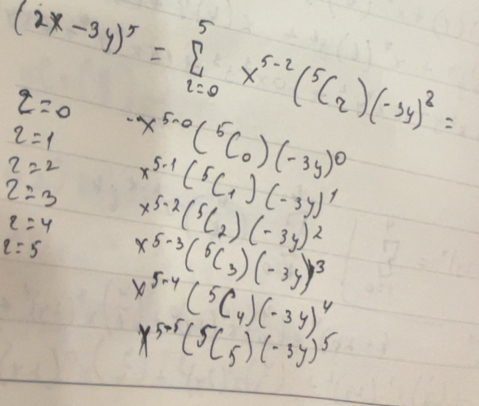 (2x-3y)⁵ = ∑ from r=0 to 5 x⁵⁻ʳ (⁵Cᵣ) (-3y)ʳ =
r=0 x⁵⁻⁰ (⁵C₀) (-3y)⁰
r=1 x⁵⁻¹ (⁵C₁) (-3y)¹
r=2 x⁵⁻² (⁵C₂) (-3y)²
r=3 x⁵⁻³ (⁵C₃) (-3y)³
r=4 x⁵⁻⁴ (⁵C₄) (-3y)⁴
r=5 x⁵⁻⁵ (⁵C₅) (-3y)⁵